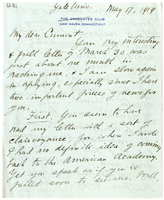 Yale Univ. May 17, 1918
THE GRADUATES CLUB
NEW HAVEN CONNECTICUT
My dear Cumont,
Your interesting
& full letter of March 30 was
just about one month in
reaching me, & I am slow again
in replying, especially since there are
two important pieces of news for
you.
First. You seem to have
read my letter with a sort of
clairvoyance, when I wrote
I had no definite idea of coming
back to the American Academy.
Yet you speak as if you ex-
pected soon to see me. Well,